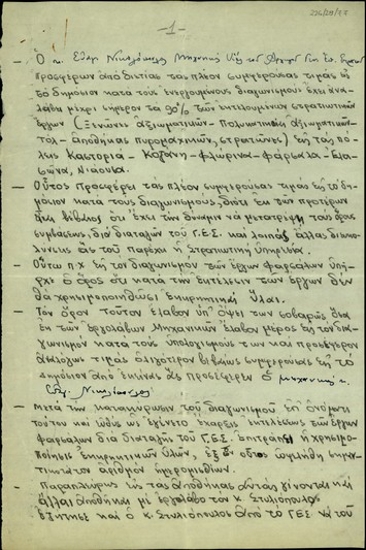 -1-
- Ο κ. Ευάγ. Νικολόπουλος Μηχανικός υιός του
προσφέρων από διετίας τας πλέον συμφερούσας τιμάς εις
το δημόσιον κατά τους ενεργουμένους διαγωνισμούς έχει ανα-
λάβει μέχρι σήμερον τα 90% των εκτελουμένων στρατιωτικών
έργων (Ξενώνες αξιωματικών - Πολυκατοικίαι αξιωματικών
- αποθήκαι πυρομαχικών, στρατώνες) εις τας πό-
λεις Καστοριά - Κοζάνη - Φλώρινα - Φάρσαλα - Ελασ-
σώνα, Νιάουσα.
- Ούτος προσφέρει τας πλέον συμφερούσας τιμάς εις το δη-
μόσιον κατά τους διαγωνισμούς, διότι εκ των προτέρων
είναι βέβαιος ότι έχει την δύναμιν να μετατρέψη τους όρους
συμβάσεως, διά διαταγών του Γ.Ε.Σ. και λοιπάς άλλας διευκο-
λύνσεις ας του παρέχει η Στρατιωτική Υπηρεσία.
- Ούτω π.χ εις τον διαγωνισμόν των έργων Φαρσάλων υπήρ-
χε ο όρος ότι κατά την εκτέλεσιν των έργων δεν
θα χρησιμοποιηθώσι επικρητικαί ύλαι.
- Τον όρον τούτον έλαβον υπ' όψει των σοβαρώς όσοι
εκ των εργολάβων Μηχανικών έλαβον μέρος εις τον δια-
γωνισμόν κατά τους υπολογισμούς των και προσέφερον
αναλόγως τιμάς ολιγώτερον βεβαίως συμφερούσας εις το
δημόσιον από εκείνας ας προσέφερεν ο μηχανικός κ.
Ευάγ. Νικολόπουλος
- Μετά την κατακύρωσιν του διαγωνισμού επ' ονόματι
τούτου και ευθύς ως εγένετο έναρξις εκτελέσεως των έργων
Φαρσάλων διά διαταγής του Γ.Ε.Σ. επιτράπη η χρησιμο-
ποίησις επικρητικών υλών, εξ ου ούτος ωφελήθη σημαν-
τικώτατον αριθμόν ημερομισθίων.
- Παραπλεύρως εις τας αποθήκας αυτάς γίνονται και
άλλαι αποθήκαι με εργολάβον τον κ. Στυλιόπουλον
εζήτησε και ο κ. Στυλιόπουλος από το ΓΕΣ να του